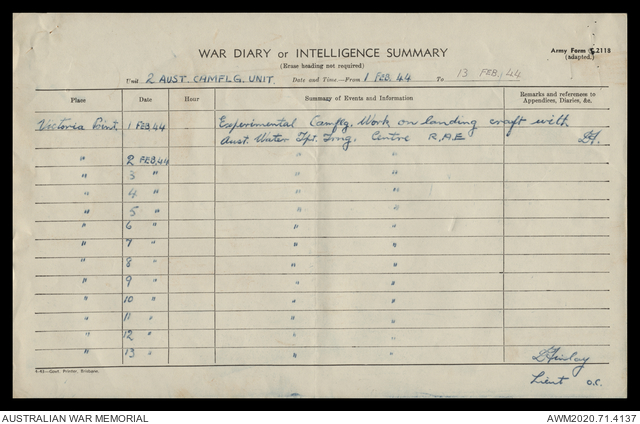 WAR DIARY or INTELLIGENCE SUMMARY
Army Form C.2118
(adapted.)
(Erase heading not required)
Unit 2 AUST. CAMFLG. UNIT. Date and Time—From 1 FEB. 44 To 13 FEB, 44
Place Date Hour Summary of Events and Information Remarks and references to
Appendices, Diaries, &c.
Victoria Point. 1 FEB, 44 Experimental Camflg. Work on landing craft with
Aust. Water Tpt. Trng. Centre R.A.E
" 2 FEB, 44 " "
" 3 " " "
" 4 " " "
" 5 " " "
" 6 " " "
" 7 " " "
" 8 " " "
" 9 " " "
" 10 " " "
" 11 " " "
" 12 " " "
" 13 " " "
4-43—Govt. Printer, Brisbane.
Lieut O.C.
AUSTRALIAN WAR MEMORIAL AWM2020.71.4137